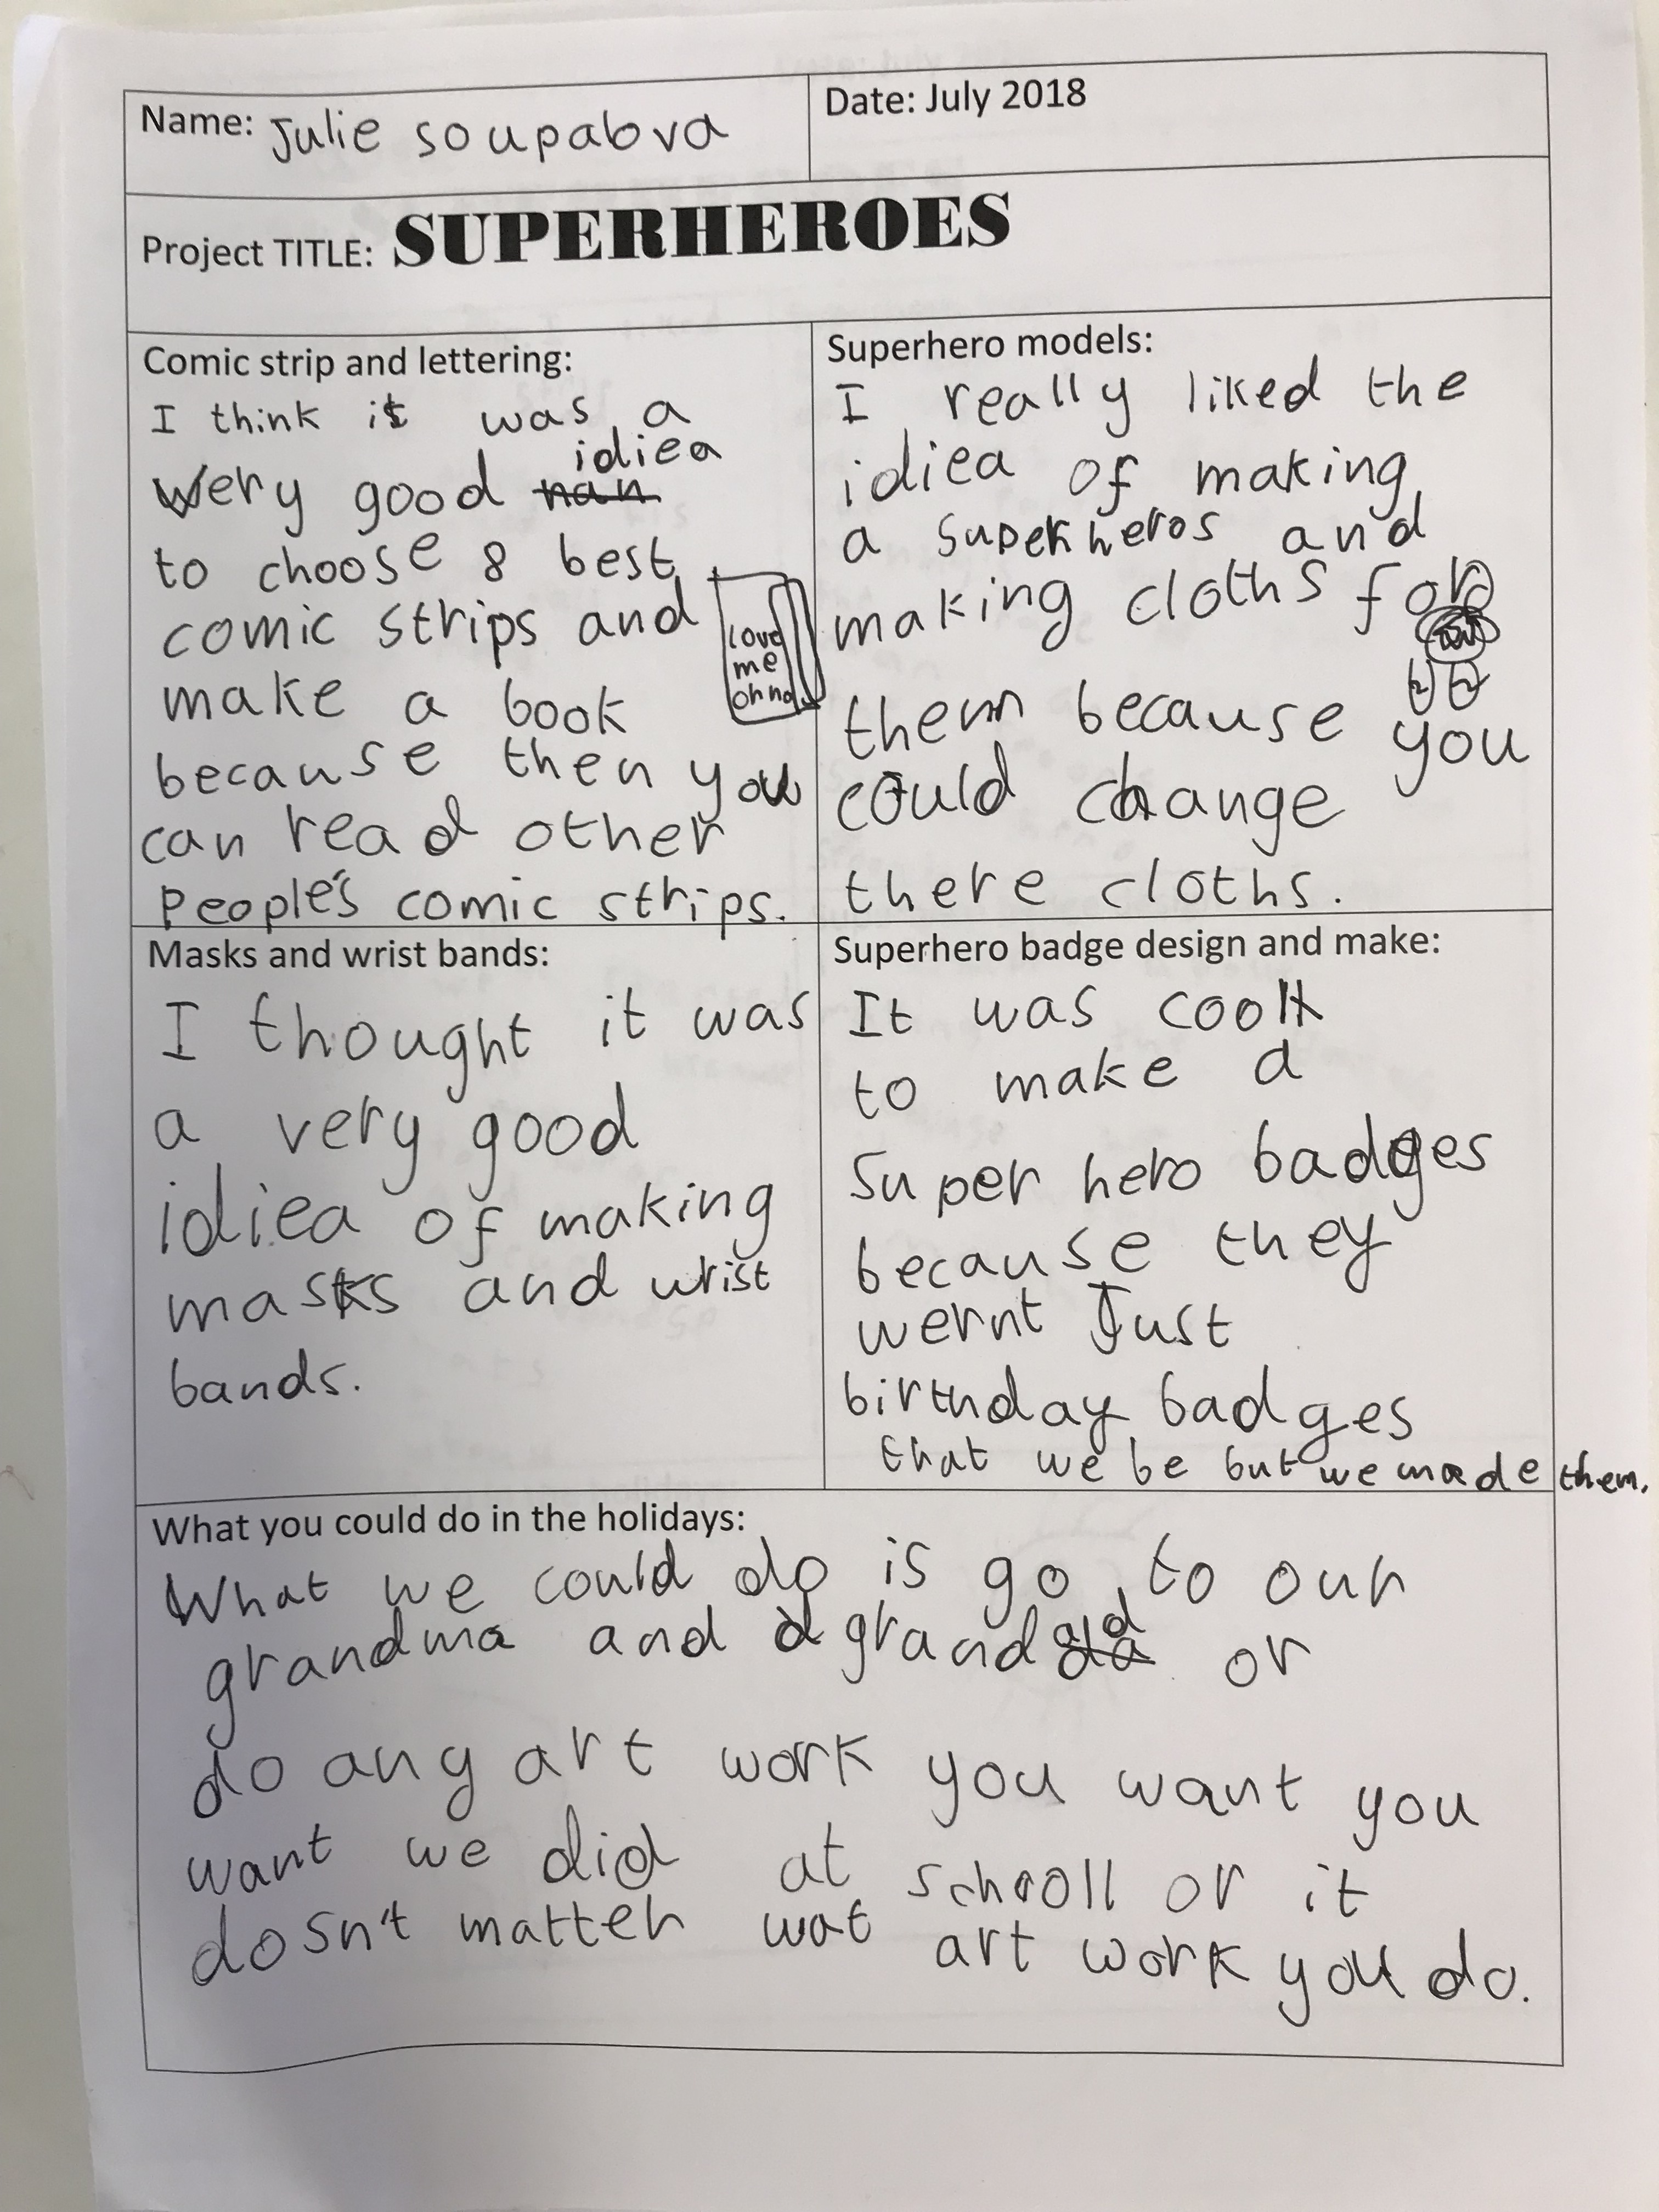 Name: Julie soupabva
Date: July 2018
Project TITLE: SUPERHEROES
Comic strip and lettering:
I think it was a
idiea
very good nan
to choose 8 best
comic strips and
make a book
because then you
can read other
people's comic strips.
love
me
oh no
Superhero models:
I really liked the
idiea of making
a superheros and
making cloths for
them because you
could change
there cloths.
Masks and wrist bands:
I thought it was
a very good
idiea of making
masks and wrist
bands.
Superhero badge design and make:
It was cool
to make a
super hero badges
because they
wernt Just
birthday badges
that we be but we made them.
What you could do in the holidays:
What we could do is go to our
grandma and grandad or
do any art work you want you
want we did at schooll or it
dosn't matter wat art work you do.